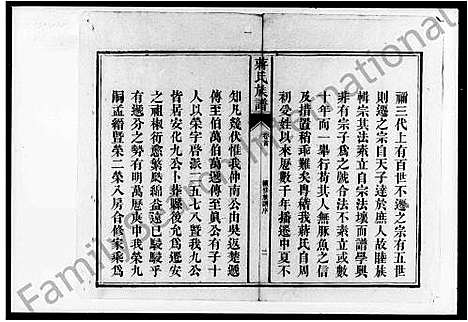 禰三代上有百世不遷之宗有五世
則遷之宗自天子達於庶人故睦族
輯宗其法素立自宗法壞而譜學興
非有宗子為之號合法不素立或數
十年而一舉行苟其人無豚魚之信
及措置稍乖難矣粵稽我蔣氏自周
初受姓以來歷數千年播遷中夏不
蔣氏族譜
知凡幾伏惟我仲南公由吳返楚遞
傳至伯萬伯萬遞傳至眞公有子十
人以榮字啓派一五七八暨我九公
皆居安化九公卜葬縣後允為遷安
之祖椒衍愈繁瓞綿益遠已駸駸乎
有遞分之勢有明萬歷庚申我榮九
嗣孟縉暨榮二榮八房合修家乘為
Family International